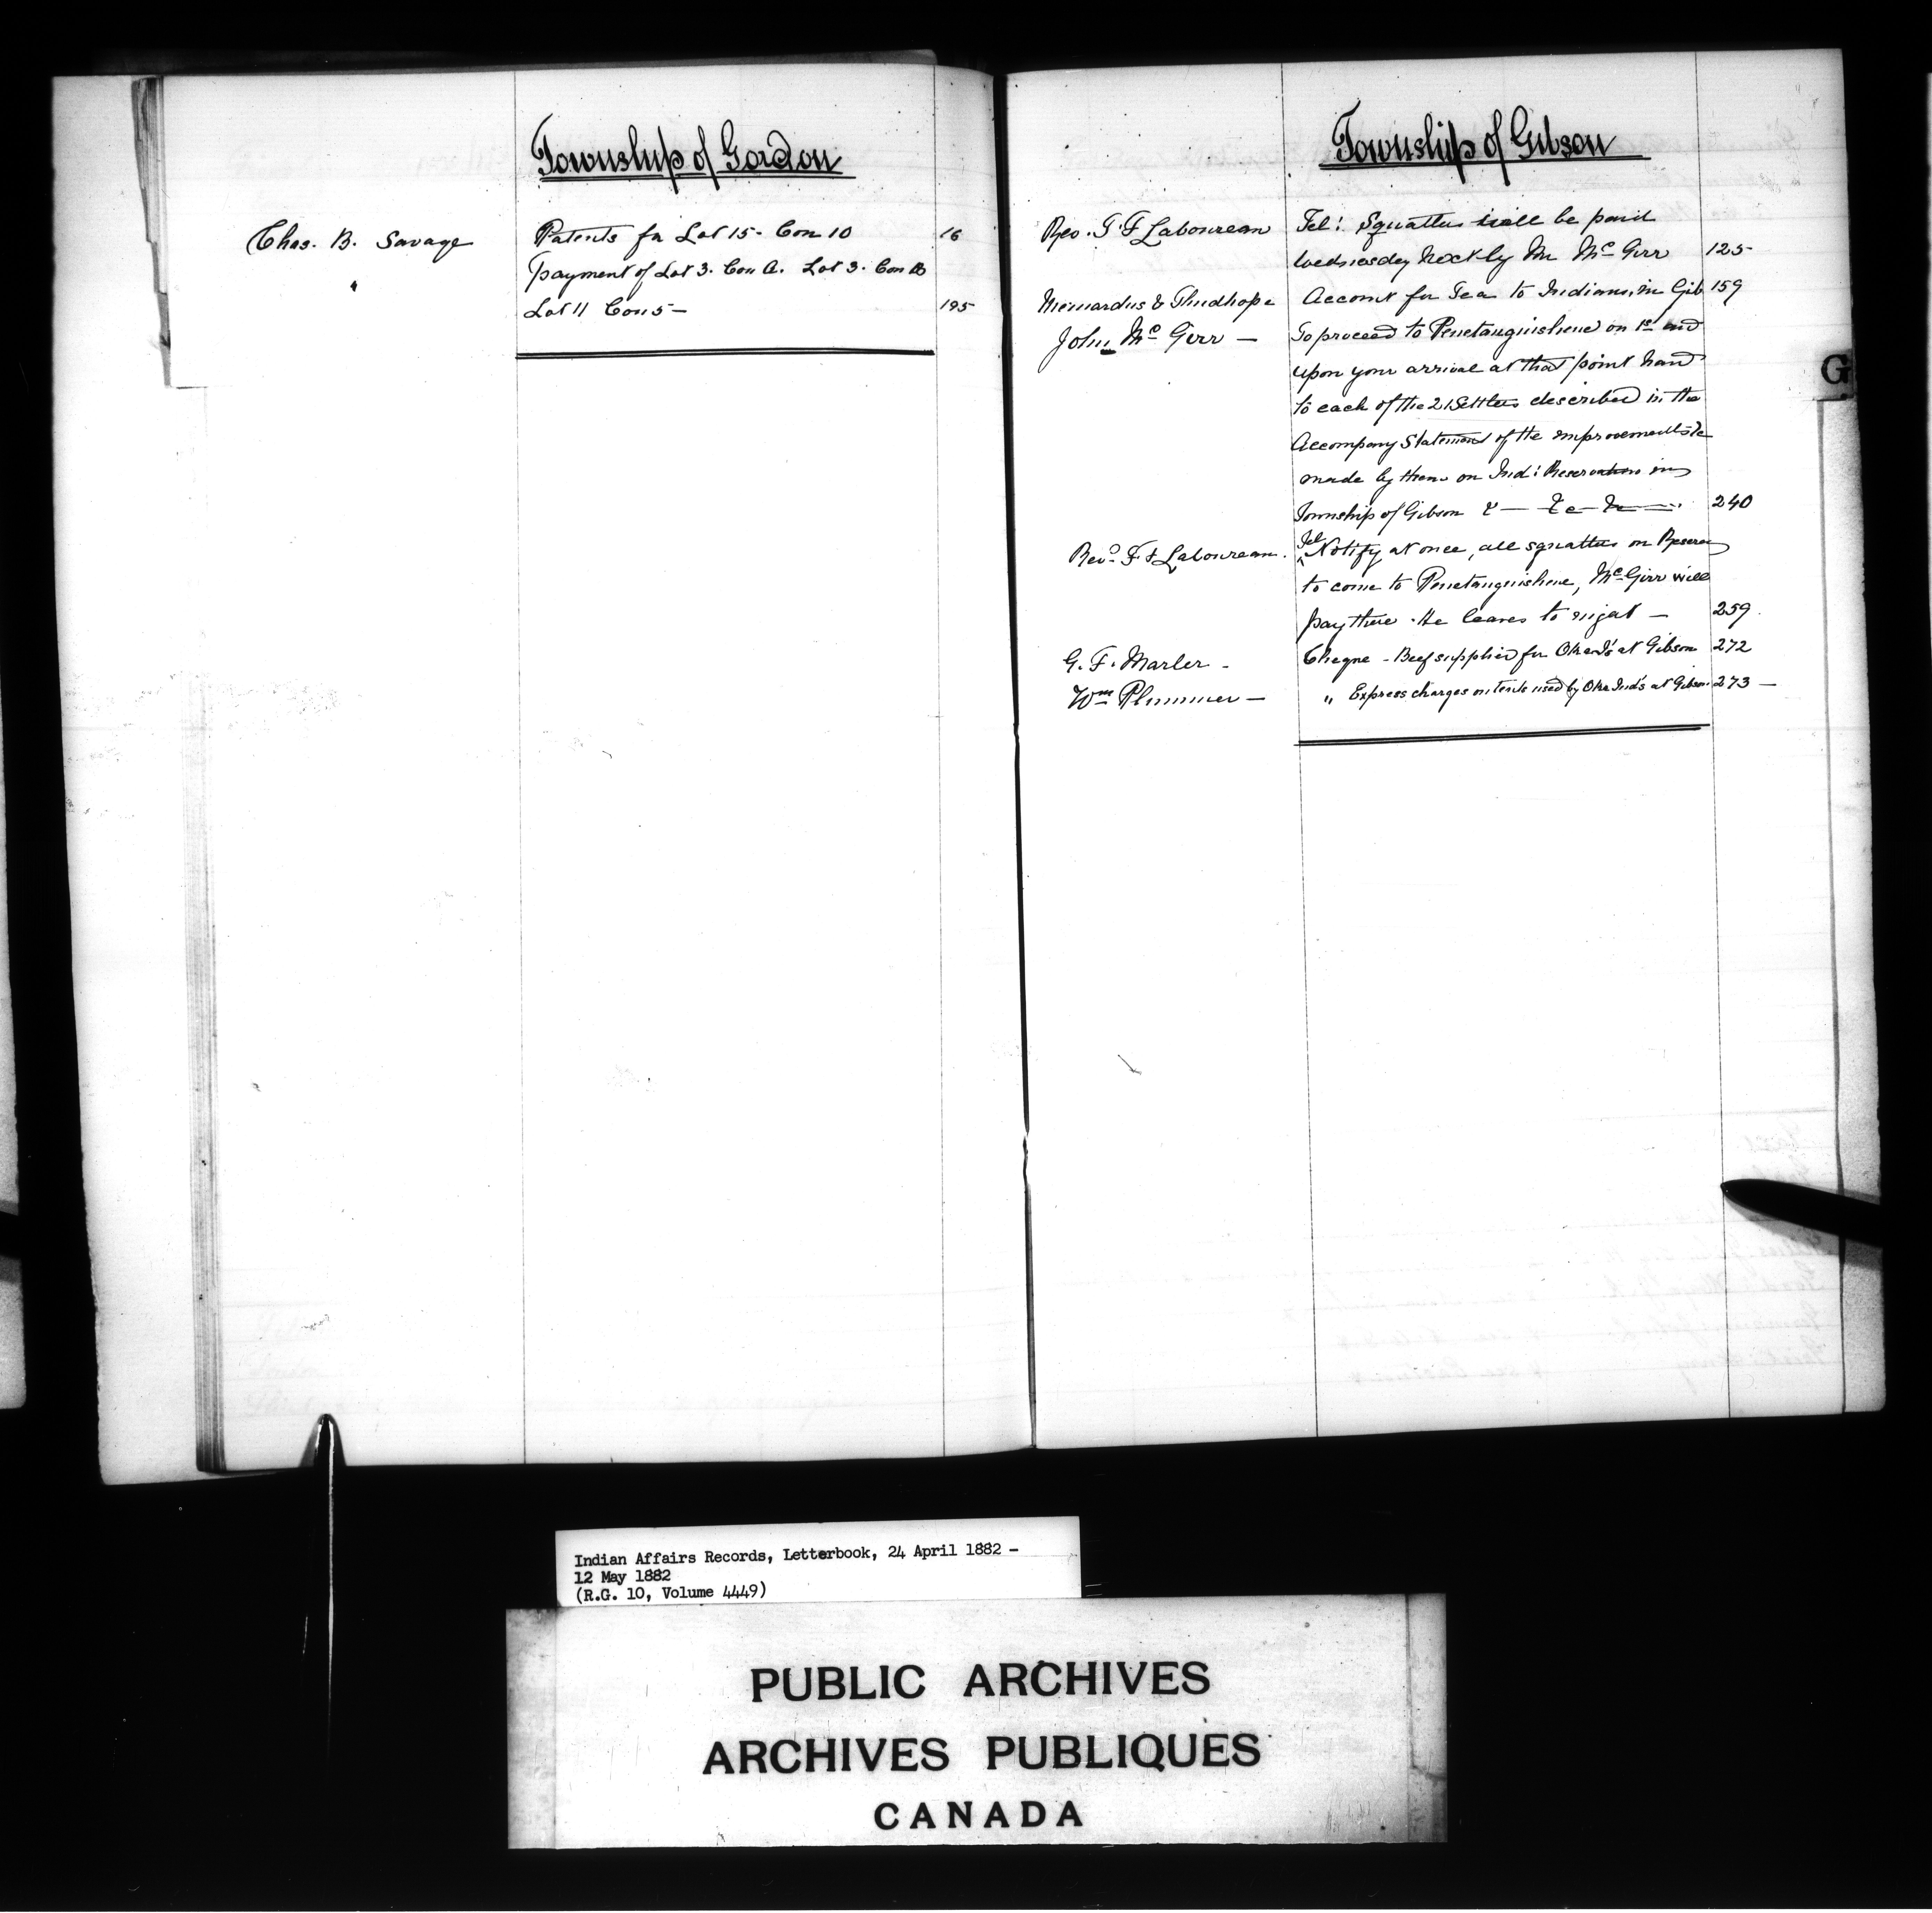 Township of Gordon
Chas. B. Savage Patents for Lot 15 - Con 10 16
" payment of Lot 3. Con A. Lot 3. Con B
Lot 11 Con 5 — 195
Township of Gibson
Rev. T. F Laboureau Tel: Squatters will be paid
Wednesday next by Mr McGirr 125
Account for Tea to Indians in Gib 159
John McGirr — To proceed to Penetanguishene on 1st and
upon your arrival at that point hand
to each of the 21 Settlers described in the
Accompany Statement of the improvements &c
made by them on Ind: Reservation in
Township of Gibson &c — &c — 240
Revd. T F Laboureau. Tel Notify at once, all squatters on Reserve
to come to Penetanguishene, McGirr will
pay there. He leaves to night — 259
G. F. Marler - Cheque - Beef supplied for Oka Ind's at Gibson 272
Wm Plummer — " Express charges on tents used by Oka Ind's at Gibson 273 —
G
Indian Affairs Records, Letterbook, 24 April 1882 -
12 May 1882
(R.G. 10, Volume 4449)
PUBLIC ARCHIVES
ARCHIVES PUBLIQUES
CANADA